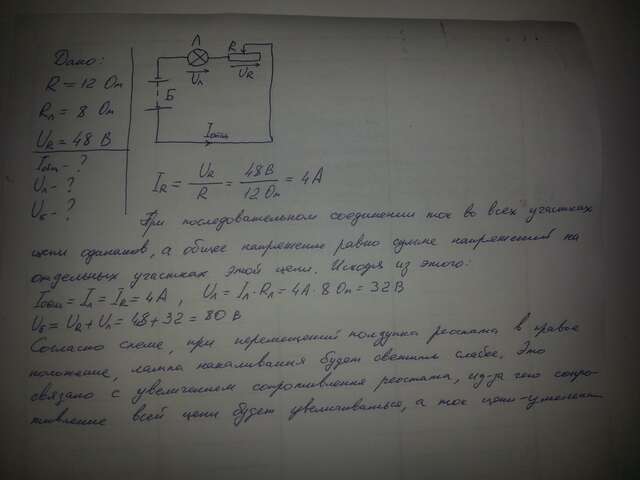 Дано:
R = 12 Ом
Rл = 8 Ом
UR = 48 В
Iобщ - ?
Uл - ?
Uб - ?
Л
R
Uл
UR
Б
Iобщ
IR = UR/R = 48В/12 Ом = 4А
При последовательном соединении ток во всех участках
цепи одинаков, а общее напряжение равно сумме напряжений на
отдельных участках этой цепи. Исходя из этого:
Iобщ = Iл = IR = 4А , Uл = Iл·Rл = 4А·8 Ом = 32 В
Uб = UR + Uл = 48 + 32 = 80 В
Согласно схеме, при перемещений ползунка реостата в правое
положение, лампа накаливания будет светить слабее. Это
связано с увеличением сопротивления реостата, из-за чего сопро-
тивление всей цепи будет увеличиваться, а ток цепи - уменьшат